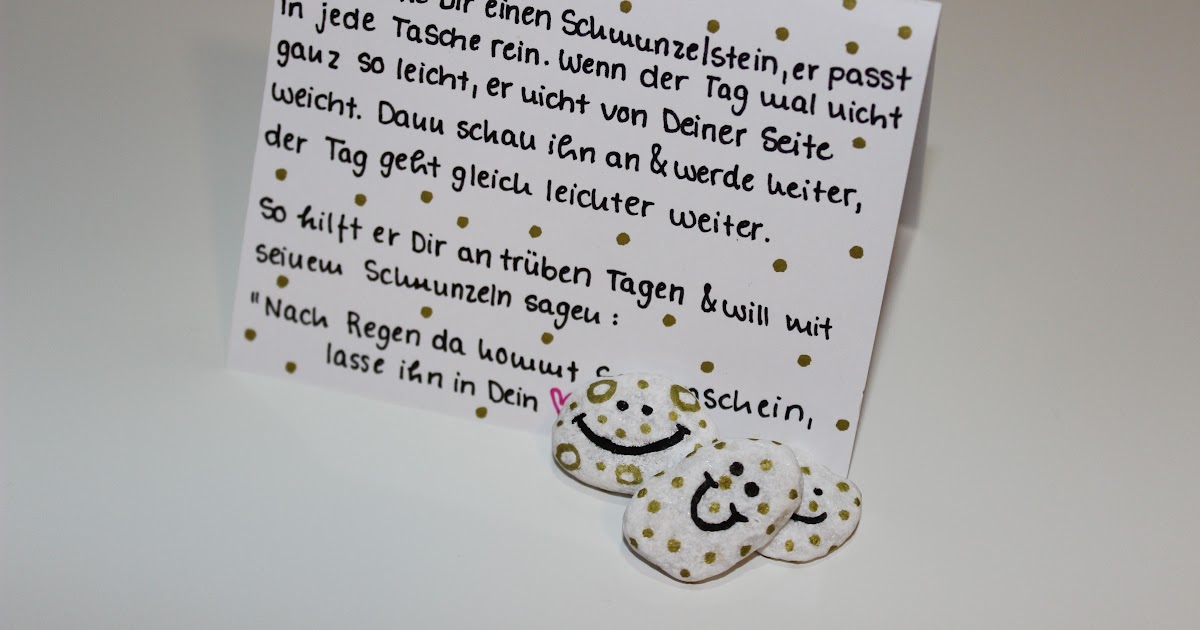 Dir einen Schmunzelstein, er passt
in jede Tasche rein. Wenn der Tag mal nicht
ganz so leicht, er nicht von Deiner Seite
weicht. Dann schau ihn an & werde heiter,
der Tag geht gleich leichter weiter.
So hilft er Dir an trüben Tagen & will mit
seinem Schmunzeln sagen:
"Nach Regen da kommt
lasse ihn in Dein ♡